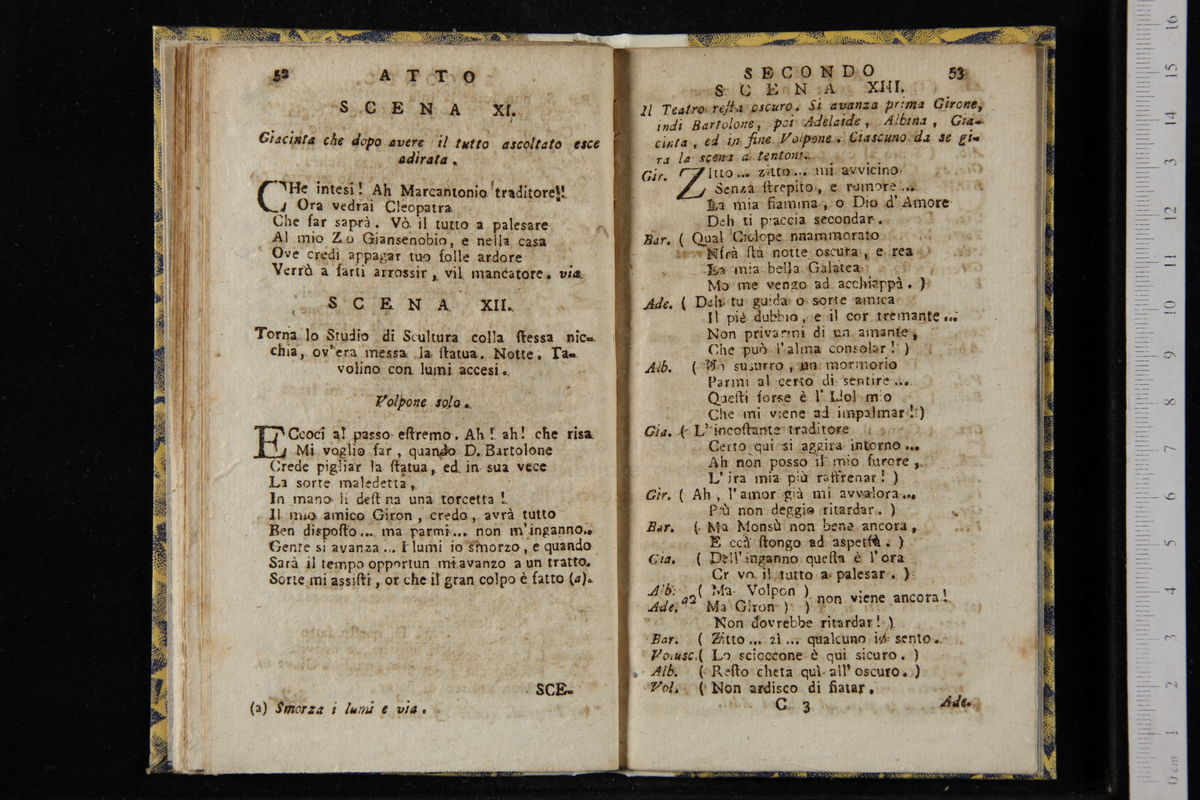 52 ATTO
SCENA XI.
Giacinta che dopo avere il tutto ascoltato esce
adirata.
CHe intesi! Ah Marcantonio traditore!!
Ora vedrai Cleopatra
Che far saprà. Vò il tutto a palesare
Al mio Zo Giansenobio, e nella casa
Ove credi appagar tuo folle ardore
Verrò a farti arrossir, vil mancatore. via.
SCENA XII.
Torna lo Studio di Scultura colla ſtessa nic-
chia, ov'era messa la ſtatua. Notte. Ta-
volino con lumi accesi.
Volpone solo.
ECcoci al passo eſtremo. Ah! ah! che risa
Mi voglio far, quando D. Bartolone
Crede pigliar la ſtatua, ed in sua vece
La sorte maledetta,
In mano li deſt na una torcetta!
Il mio amico Giron, credo, avrà tutto
Ben dispoſto... ma parmi... non m'inganno..
Gente si avanza... I lumi io smorzo, e quando
Sarà il tempo opportun mi avanzo a un tratto.
Sorte mi assiſti, or che il gran colpo è fatto (a).
SCE-
(a) Smorza i lumi e via.
SECONDO 53
SCENA XIII.
Il Teatro reſta oscuro. Si avanza prima Girone,
indi Bartolone, poi Adelaide, Albina, Gia-
cinta, ed in fine Volpone. Ciascuno da se gi-
ra la scena a tentoni.
Gir. ZItto... zitto... mi avvicino
Senza ſtrepito, e rumore...
La mia fiamma, o Dio d'Amore
Deh ti piaccia secondar.
Bar. ( Qual Ciclope nnammorato
Nfrà ſta notte oscura, e rea
La mia bella Galatea
Mo me vengo ad acchiappà. )
Ade. ( Deh tu guida o sorte amica
Il piè dubbio, e il cor tremante...
Non privarmi di un amante,
Che può l'alma consolar! )
Alb. ( Un susurro, un mormorio
Parmi al certo di sentire...
Queſti forse è l'Idol mio
Che mi viene ad impalmar! )
Gia. ( L'incoſtante traditore
Certo qui si aggira intorno...
Ah non posso il mio furore,
L'ira mia più raffrenar! )
Gir. ( Ah, l'amor già mi avvalora...
Più non deggio ritardar. )
Bar. ( Ma Monsù non bene ancora,
E ccà ſtongo ad aspettà. )
Gia. ( Dell'inganno queſta è l'ora
Or vo il tutto a palesar. )
Alb. ( Ma Volpon )
Ade. a2 Ma Giron ) ) non viene ancora!
Non dovrebbe ritardar! )
Bar. ( Zitto... zì... qualcuno io sento.
Vo.usc. ( Lo scioccone è qui sicuro. )
Alb. ( Reſto cheta quì all'oscuro. )
Vol. ( Non ardisco di fiatar.
C 3 Ade.
0 cm 1 2 3 4 5 6 7 8 9 10 11 12 13 14 15 16